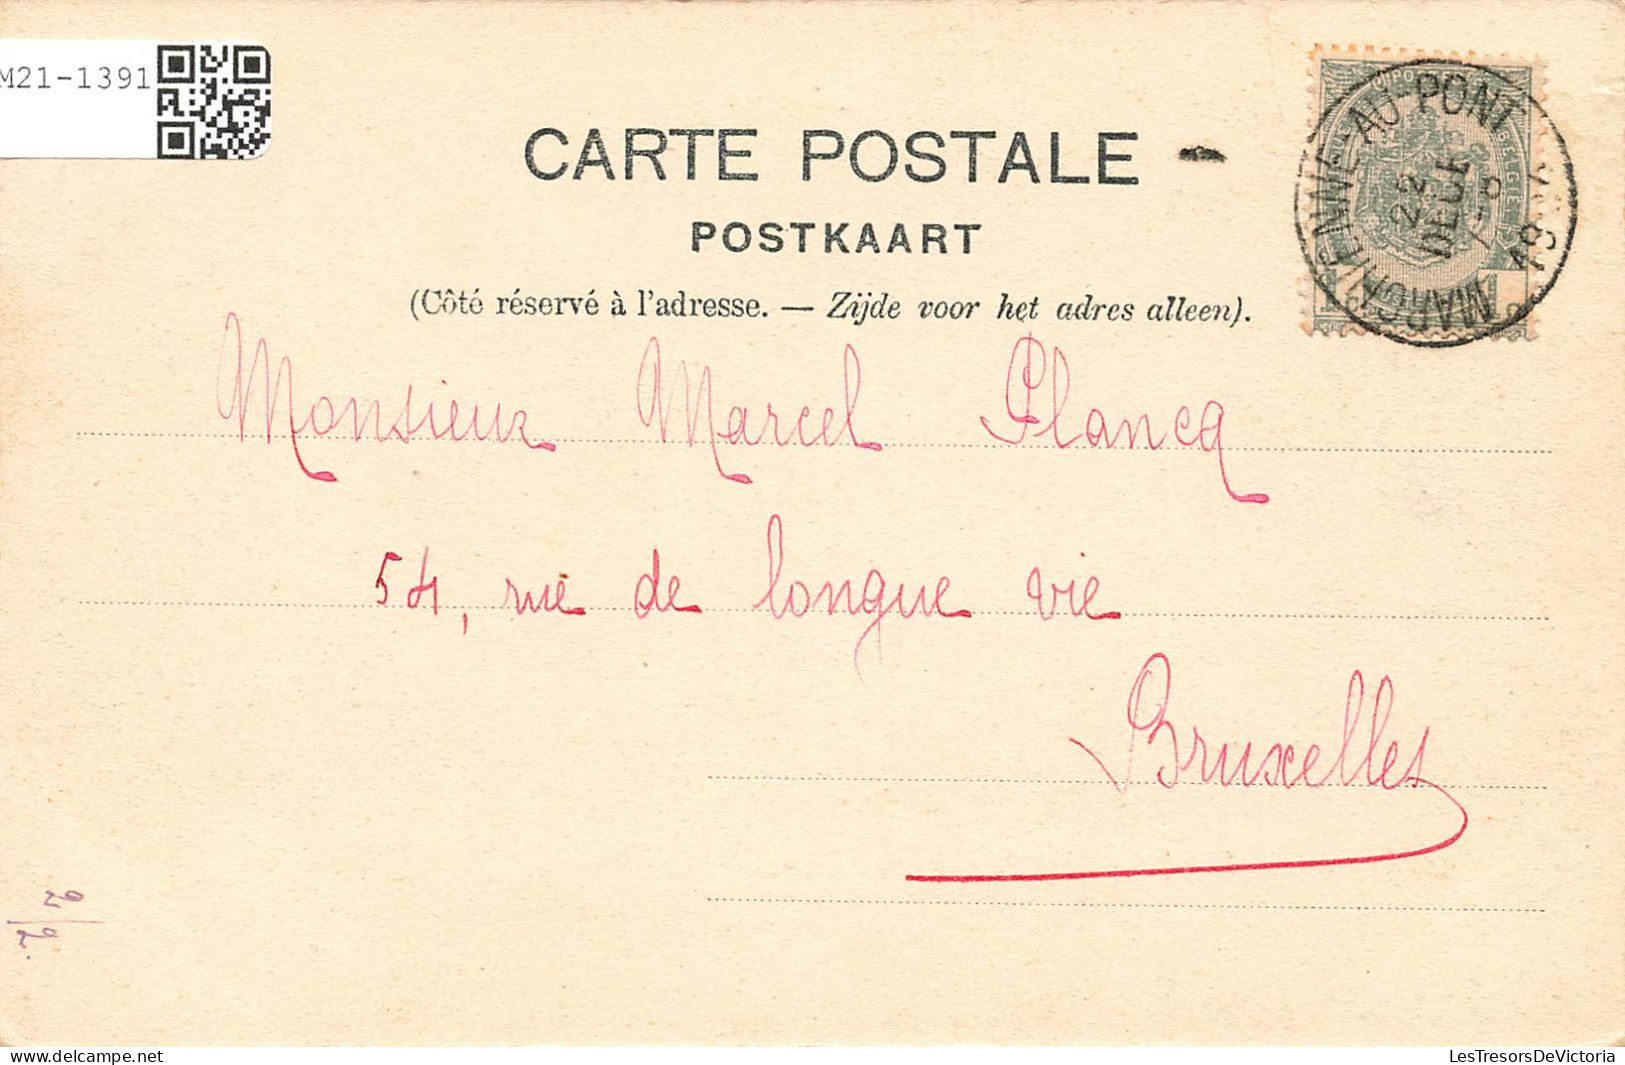 M21-1391
CARTE POSTALE
POSTKAART
(Côté réservé à l'adresse. — Zijde voor het adres alleen).
MARCHIENNE-AU-PONT
22
DECE
7-8
Monsieur Marcel Plancq
54, rue de longue vie
Bruxelles
LesTresorsDeVictoria
delcampe.net